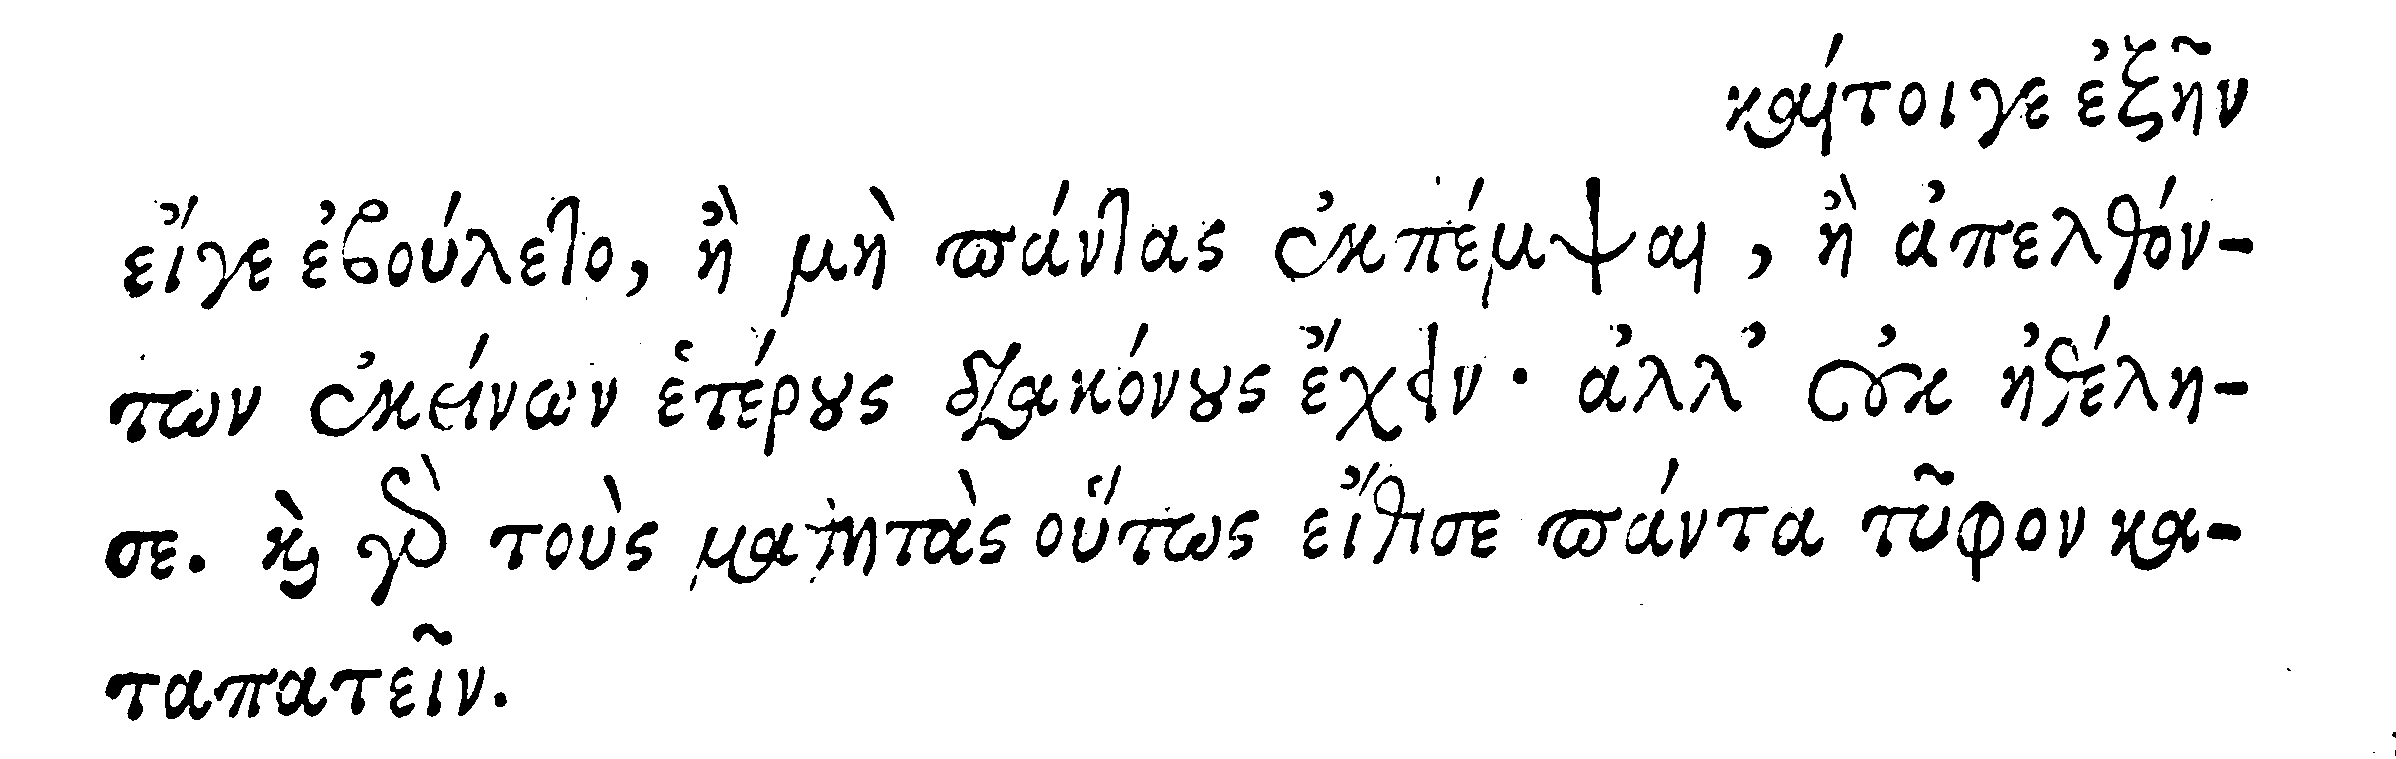 καίτοιγε ἐξῆν
εἴγε ἐβούλετο, ἢ μὴ πάντας ἐκπέμψαι, ἢ ἀπελθόν-
των ἐκείνων ἑτέρους διακόνους ἔχειν· ἀλλ’ οὐκ ἠθέλη-
σε. καὶ γὰρ τοὺς μαθητὰς οὕτως εἴθισε πάντα τῦφον κα-
ταπατεῖν.